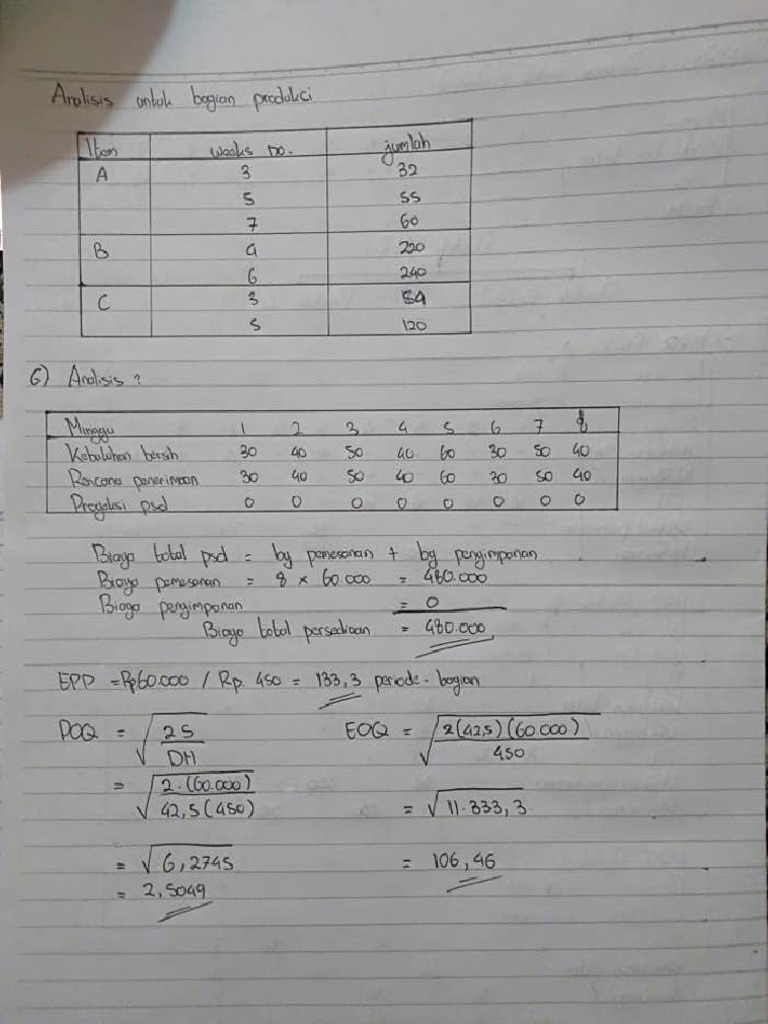 Analisis untuk bagian produksi
Item weeks no. jumlah
A 3 32
5 55
7 60
B 4 220
6 240
C 3 84
5 120
6) Analisis ?
Minggu 1 2 3 4 5 6 7 8
Kebutuhan bersih 30 40 50 40 60 30 50 40
Rencana penerimaan 30 40 50 40 60 30 50 40
Proyeksi psd 0 0 0 0 0 0 0 0
Biaya total psd = by pemesanan + by pengimpanan
Biaya pemesanan = 8 x 60.000 = 480.000
Biaya pengimponan = 0
Biaya total persediaan = 480.000
EPP = Rp60.000 / Rp. 450 = 133,3 periode-bagian
POQ = √2S/DH EOQ = √2(42,5)(60.000)/450
= √2.(60.000)/42,5(450) = √11.333,3
= √6,2745 = 106,46
= 2,5049